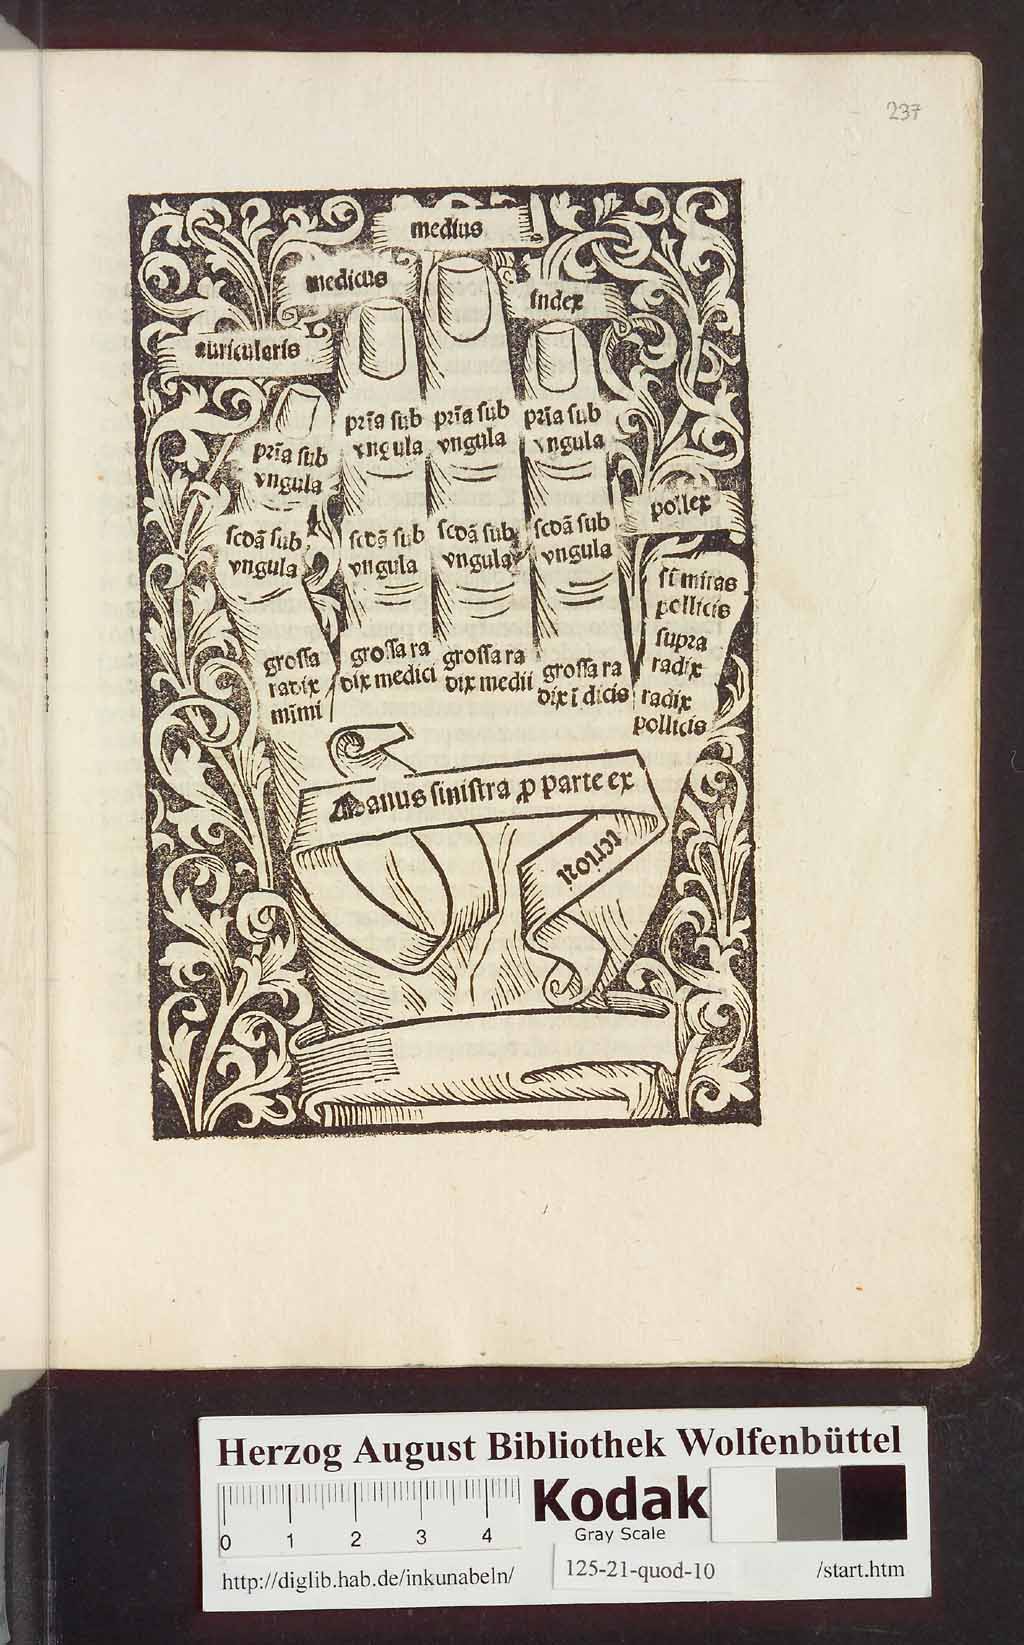 237
medius
medicus
index
auricularis
pri͞a sub
vngula
pri͞a sub
vngula
pri͞a sub
vngula
pri͞a sub
vngula
pollex
scdã sub
vngula
scdã sub
vngula
scdã sub
vngula
scdã sub
vngula
pollicis
supra
radix
radix
pollicis
grossa
radix
mĩmi
grossa ra
dix medici
grossa ra
dix medii
grossa ra
dix ĩdicis
Manus sinistra ꝓ parte ex
teriori
Herzog August Bibliothek Wolfenbüttel
0 1 2 3 4
Kodak
Gray Scale
http://diglib.hab.de/inkunabeln/
125-21-quod-10
/start.htm